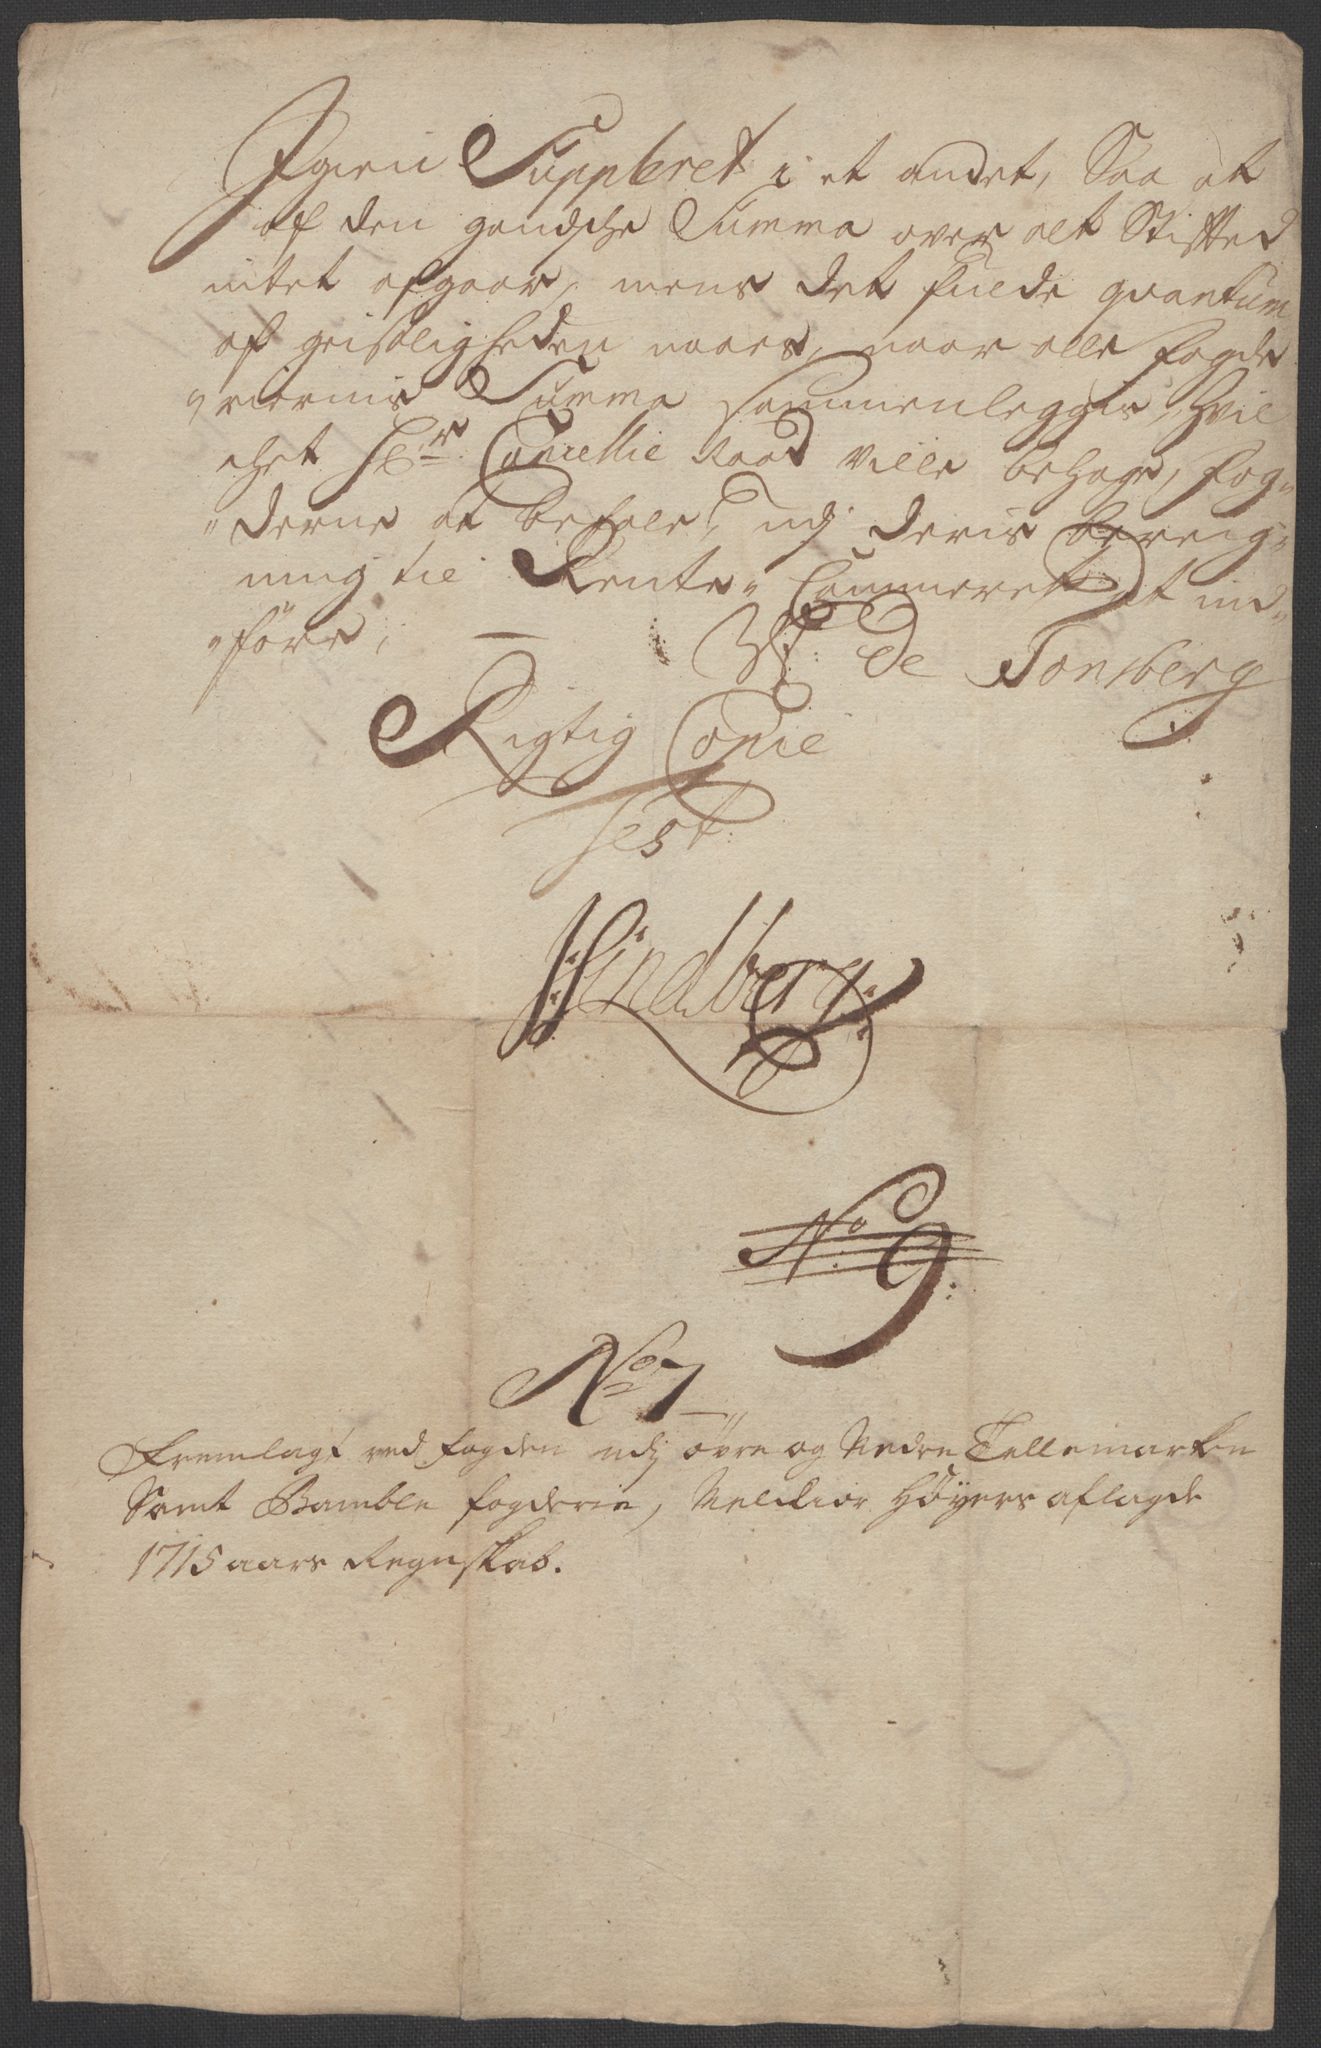 Igien Suppleret i et andet, Saa at
af den gandsche Summa over alt Stifted
intet afgaar, mens det fulde quantum
af geistligheden naaes, naar alle fogde
"riernis Summa sammenlegges, hvil
chet Hr Cancellie Raad ville behage, fog"
"derne at befale, udj deris bereig"
ning til Rente" Cammeret at ind"
"føre,
W: de Tonsberg
Rigtig Copie
test
HLindberg
No 9
No 7
Fremlagt ved fogden udj øvre og Nedre Tellemarken
Samt Bamble fogderie, Melchior Høyers aflagde
1715 aars Regnskab.